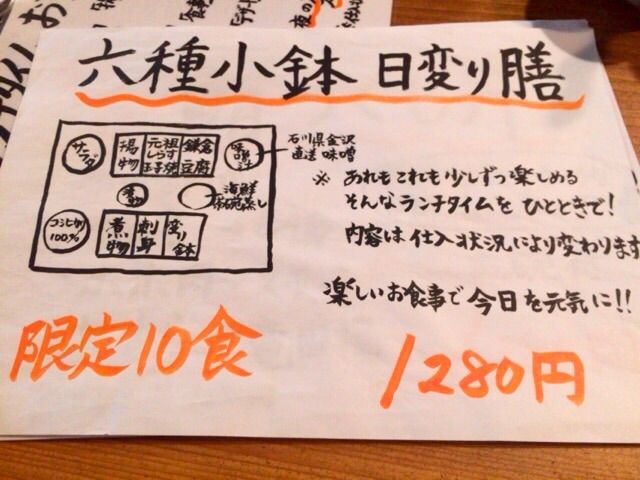 六種小鉢 日変り膳
サラダ
揚物
元祖しらす玉子焼
鎌倉豆腐
味噌汁
石川県金沢
直送 味噌
海鮮
茶碗蒸し
コシヒカリ
100%
煮物
刺身
変り鉢
※ あれもこれも少しずつ楽しめる
そんなランチタイムを ひとときで!
内容は仕入状況により変わります
楽しいお食事で 今日を元気に!!
限定10食
1280円